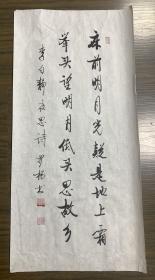 床前明月光疑是地上霜
举头望明月低头思故乡
李白静夜思诗 罗杨书